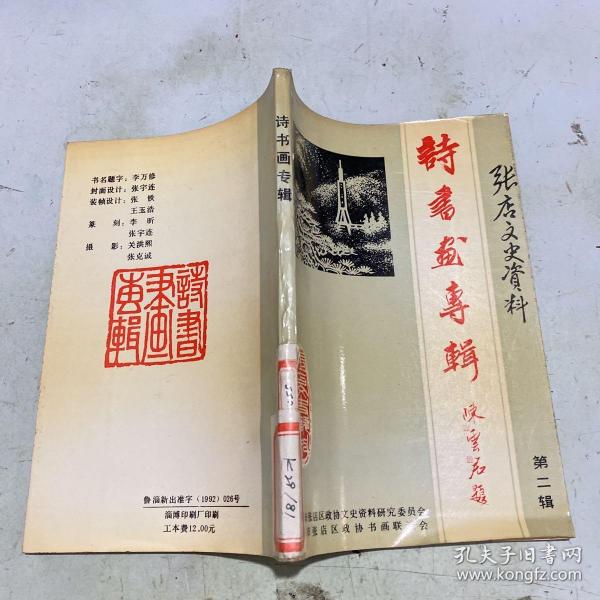 书名题字：李万修
封面设计：张宇连
装帧设计：张铁
王玉浩
篆刻：李昕
张宇连
摄影：关洪熙
张克诚
詩書
画
專輯
鲁淄新出准字（1992）026号
淄博印刷厂印刷
工本费12.00元
诗书画专辑
K29/81
張店文史資料
詩書画專輯
第二辑
张店区政协文史资料研究委员会
张店区政协书画联
会
孔夫子旧书网
www.kongfz.com